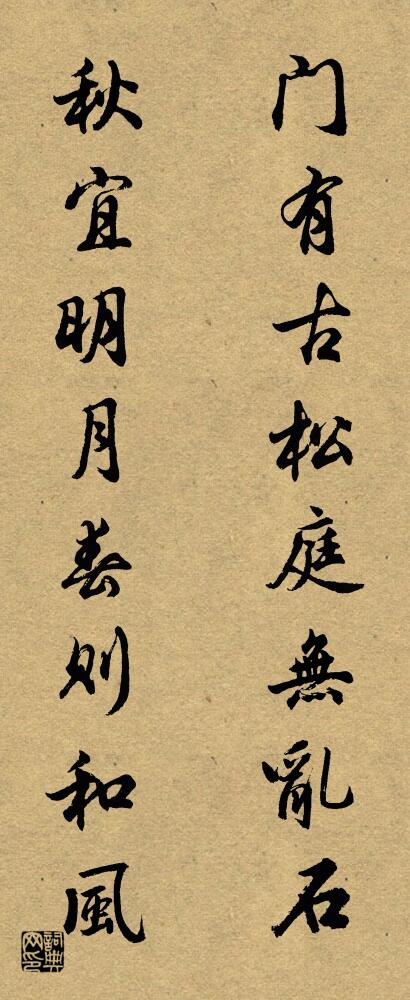 门有古松庭無亂石
秋宜明月春則和風
詞典网印